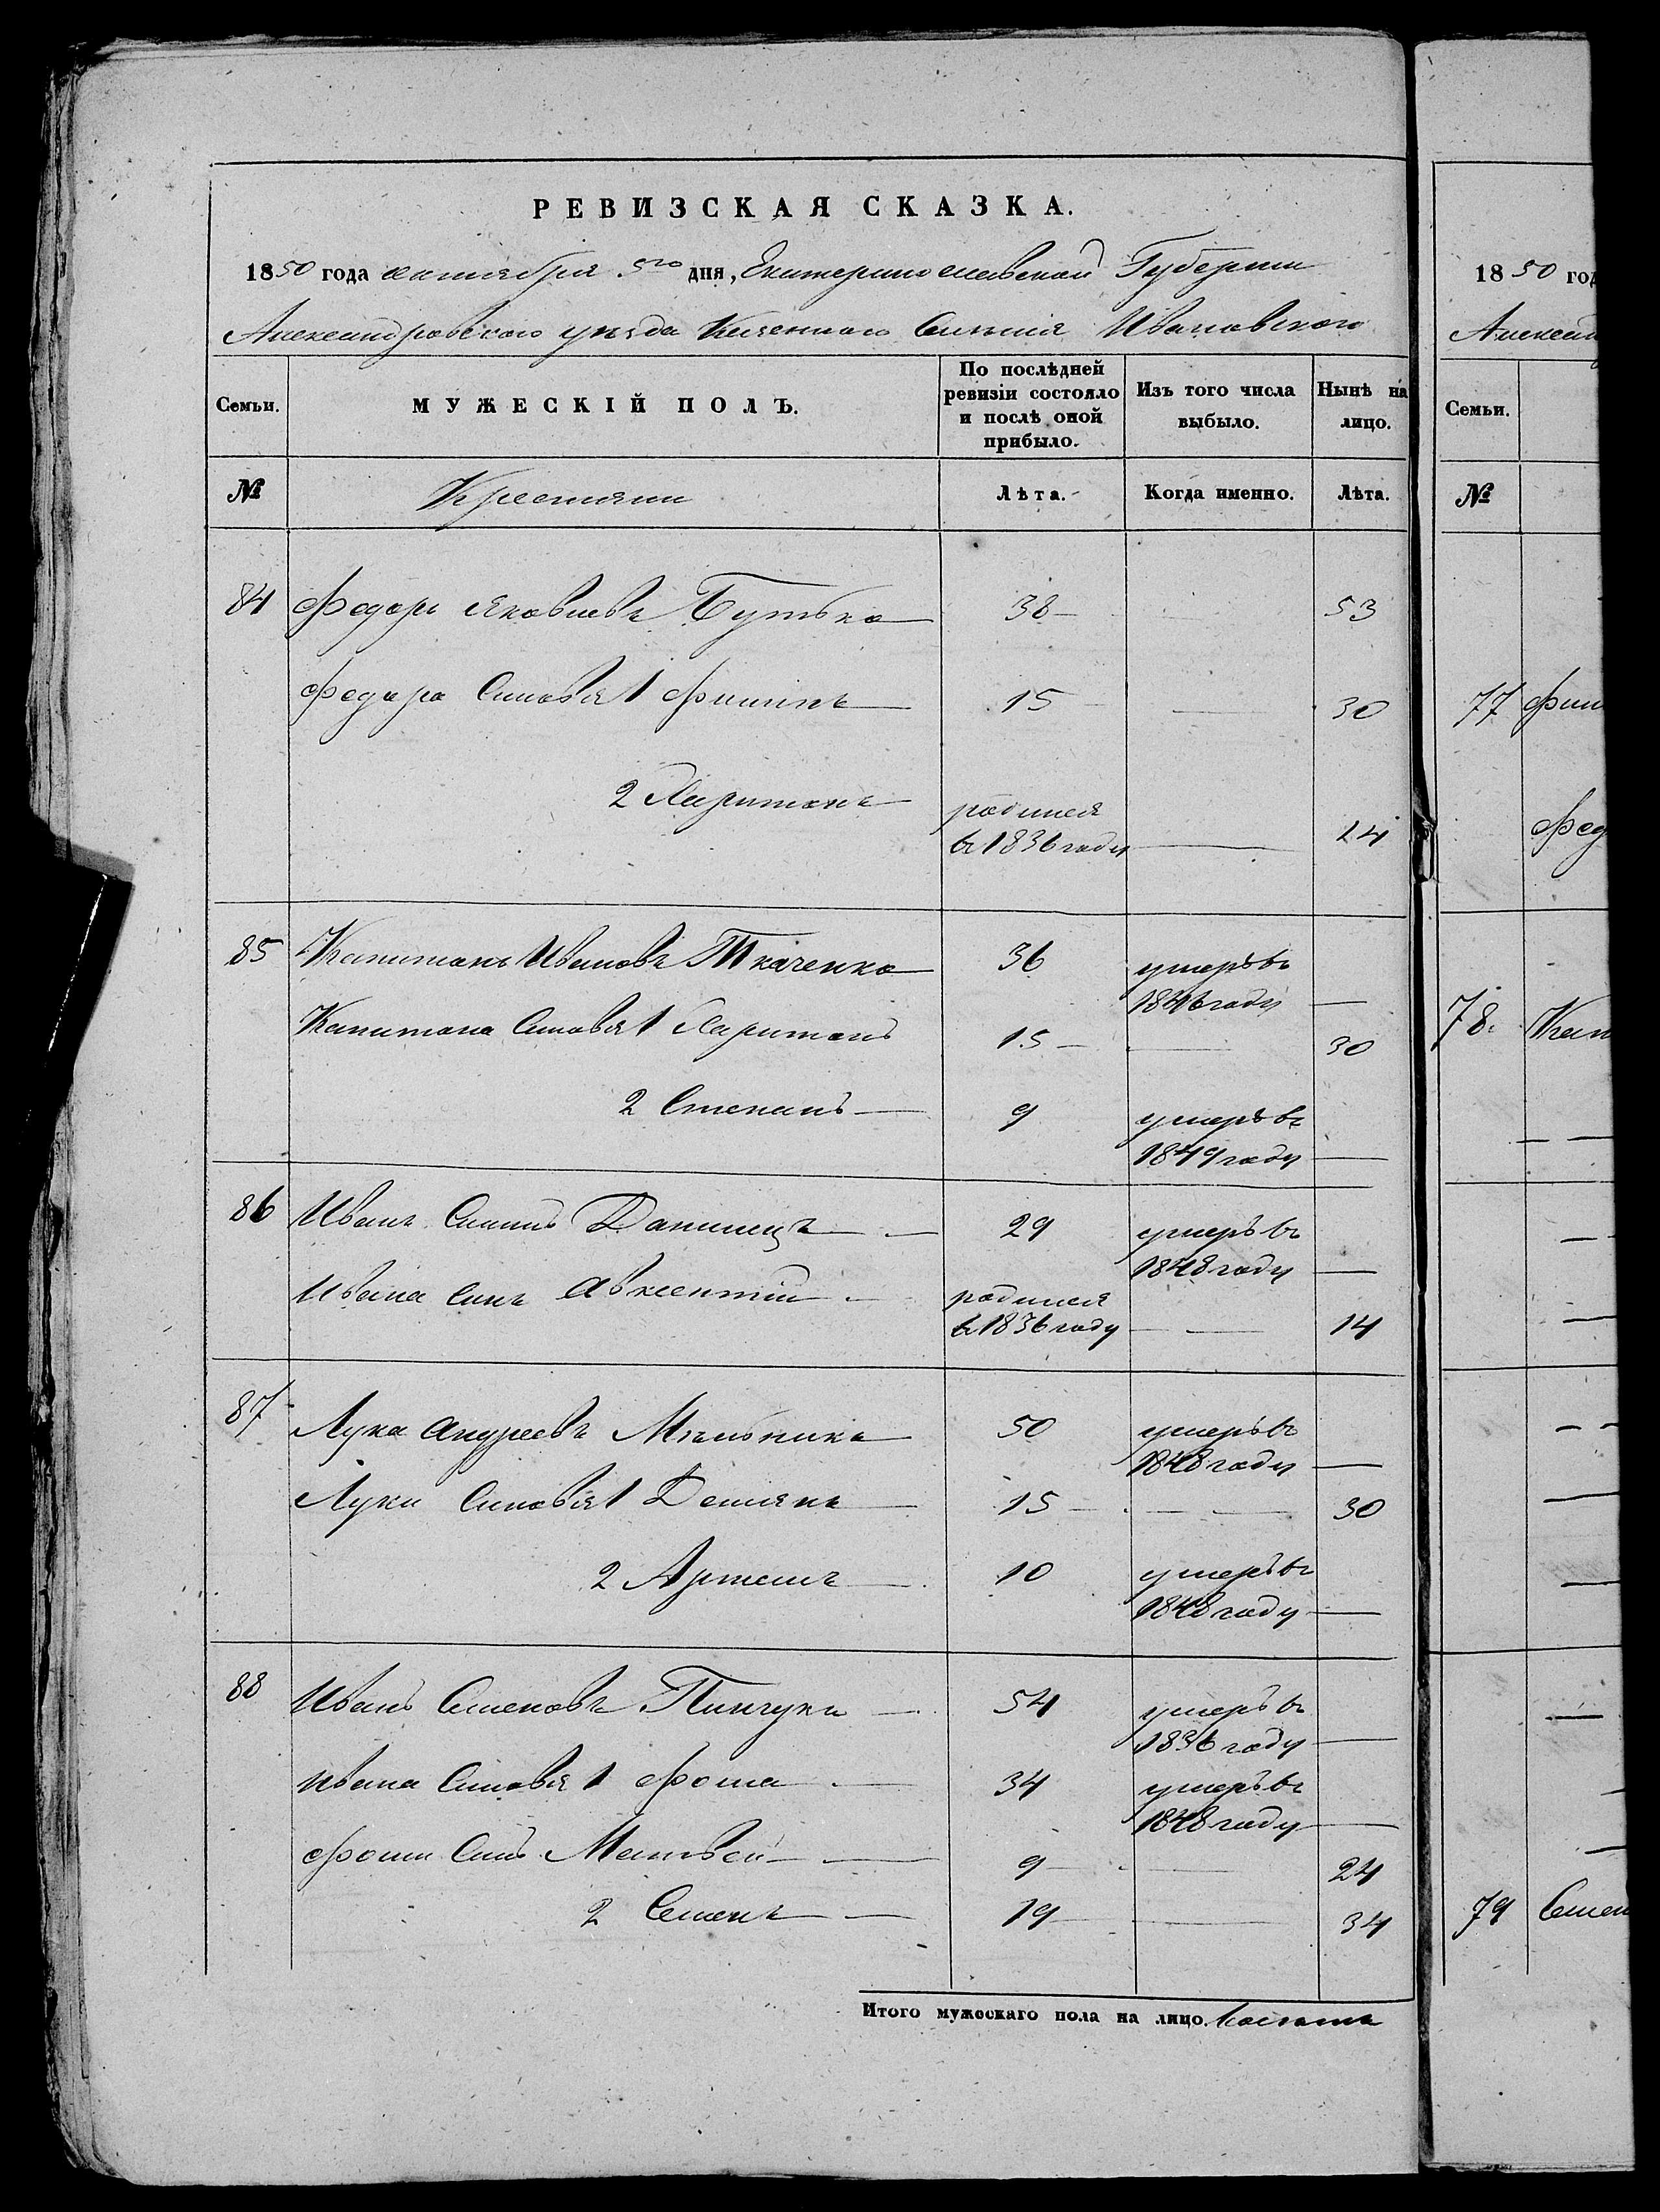 РЕВИЗСКАЯ СКАЗКА.
1850 года октября 5го дня, Екатеринославской Губернии
Александровского уезда Казенного Селенія Ивановского
Семьи.
МУЖЕСКІЙ ПОЛЪ.
По послѣдней ревизіи состояло и послѣ оной прибыло.
Изъ того числа выбыло.
Нынѣ на лицо.
№ Крестяни Лѣта. Когда именно. Лѣта.
84 Федоръ Яковлевъ Бутько 38 53
Федора Сыновья 1 Филипъ 15 30
2 Харитонъ родился
въ 1836 году 14
85 Капитонъ Ивановъ Ткаченко 36 умеръ въ
1846 году
Капитона Сыновья 1 Харитонъ 15 30
2 Степанъ 9 умеръ въ
1849 году
86 Иванъ Данилецъ 29 умеръ въ
1848 году
Ивана Сынъ Авксентій родился
въ 1836 году 14
87 Лука Андреевъ Мельникъ 50 умеръ въ
1848 году
Луки Сыновья 1 Демянъ 15 30
2 Артемъ 10 умеръ въ
1848 году
88 Иванъ Семеновъ Пинчукъ 54 умеръ въ
1836 году
Ивана Сыновья 1 Фома 34 умеръ въ
1848 году
Фомы Сынъ Матвей 9 24
2 Семенъ 19 34
Итого мужескаго пола на лицо. Восемь
1850 год
Александ
Семьи.
№
77 Фили
Фед
78. Кап
79 Семен